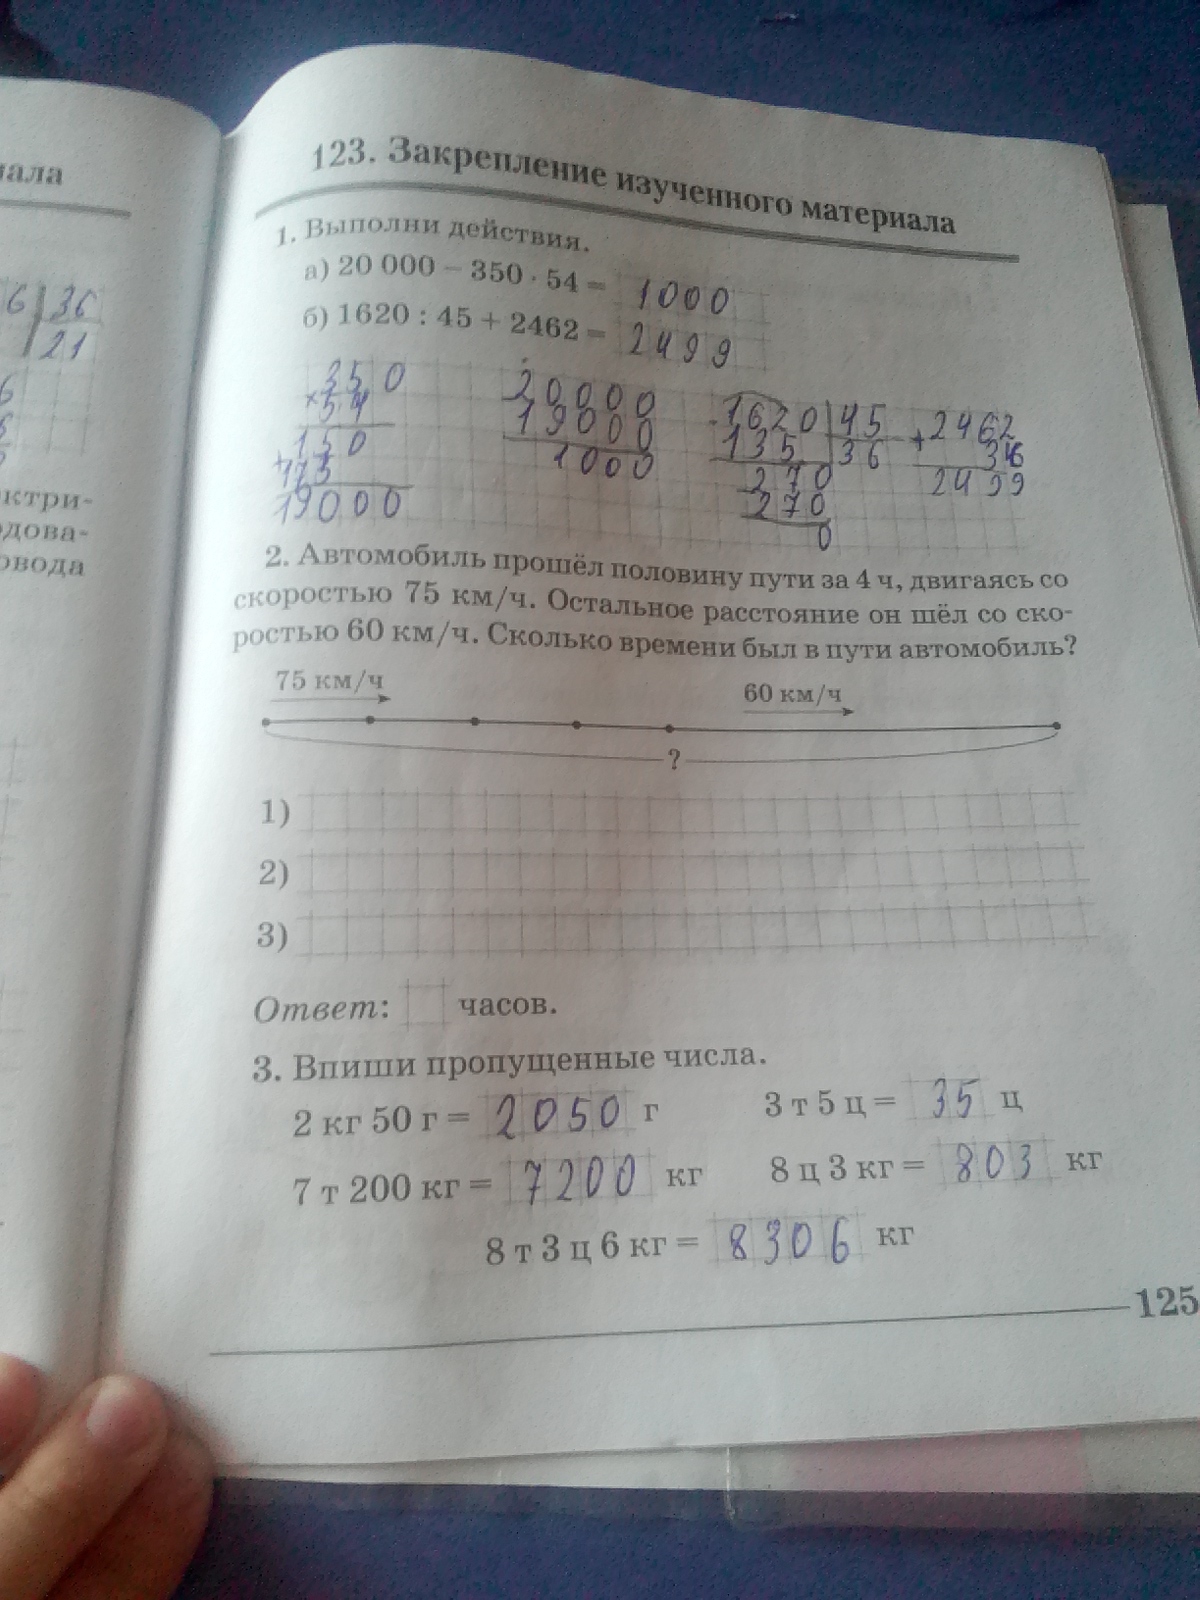 иала
6 36
21
6
6
ктри-
дова-
овода
123. Закрепление изученного материала
1. Выполни действия.
а) 20 000 – 350 · 54 = 1000
б) 1620 : 45 + 2462 = 2499
350 20000 1620 45 + 2462
× 54 19000 135 36 36
150 1000 270 2499
+ 175 270
19000 0
2. Автомобиль прошёл половину пути за 4 ч, двигаясь со
скоростью 75 км/ч. Остальное расстояние он шёл со ско-
ростью 60 км/ч. Сколько времени был в пути автомобиль?
75 км/ч 60 км/ч
?
1)
2)
3)
Ответ: часов.
3. Впиши пропущенные числа.
2 кг 50 г = 2050 г 3 т 5 ц = 35 ц
7 т 200 кг = 7200 кг 8 ц 3 кг = 803 кг
8 т 3 ц 6 кг = 8306 кг
125